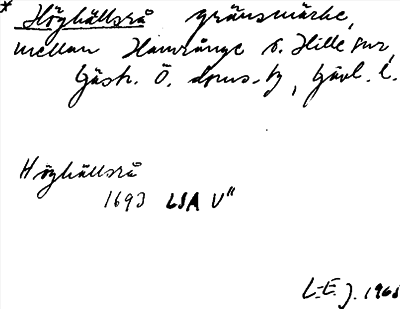 * Höghällsrå gränsmärke,
mellan Hamrånge o. Hille snr,
Gästr. Ö. doms.-by, Gävl. l.
Höghällsrå
1693 LSA V"
L-E. J. 1968